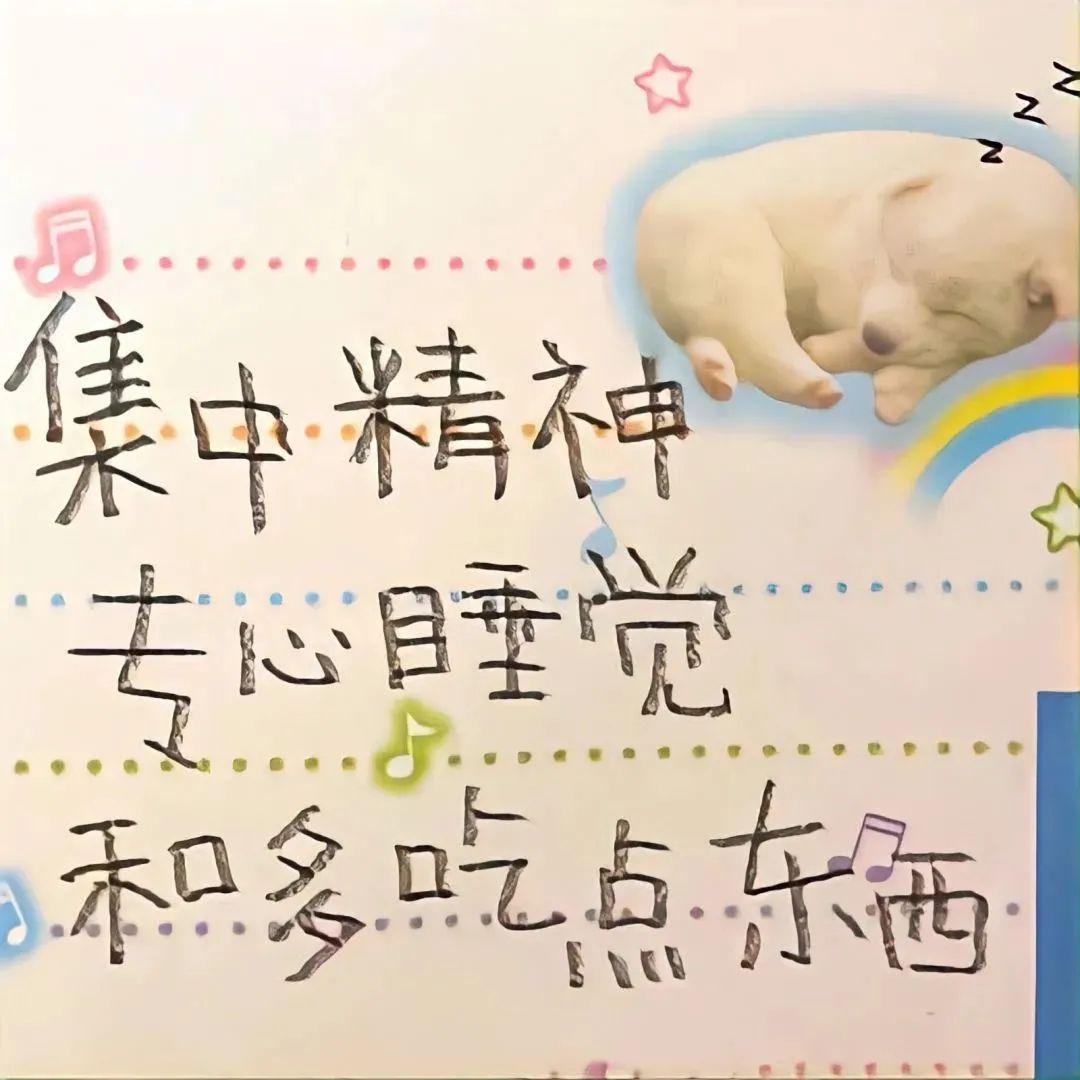 z
z
z
集中精神
专心睡觉
和多吃点东西